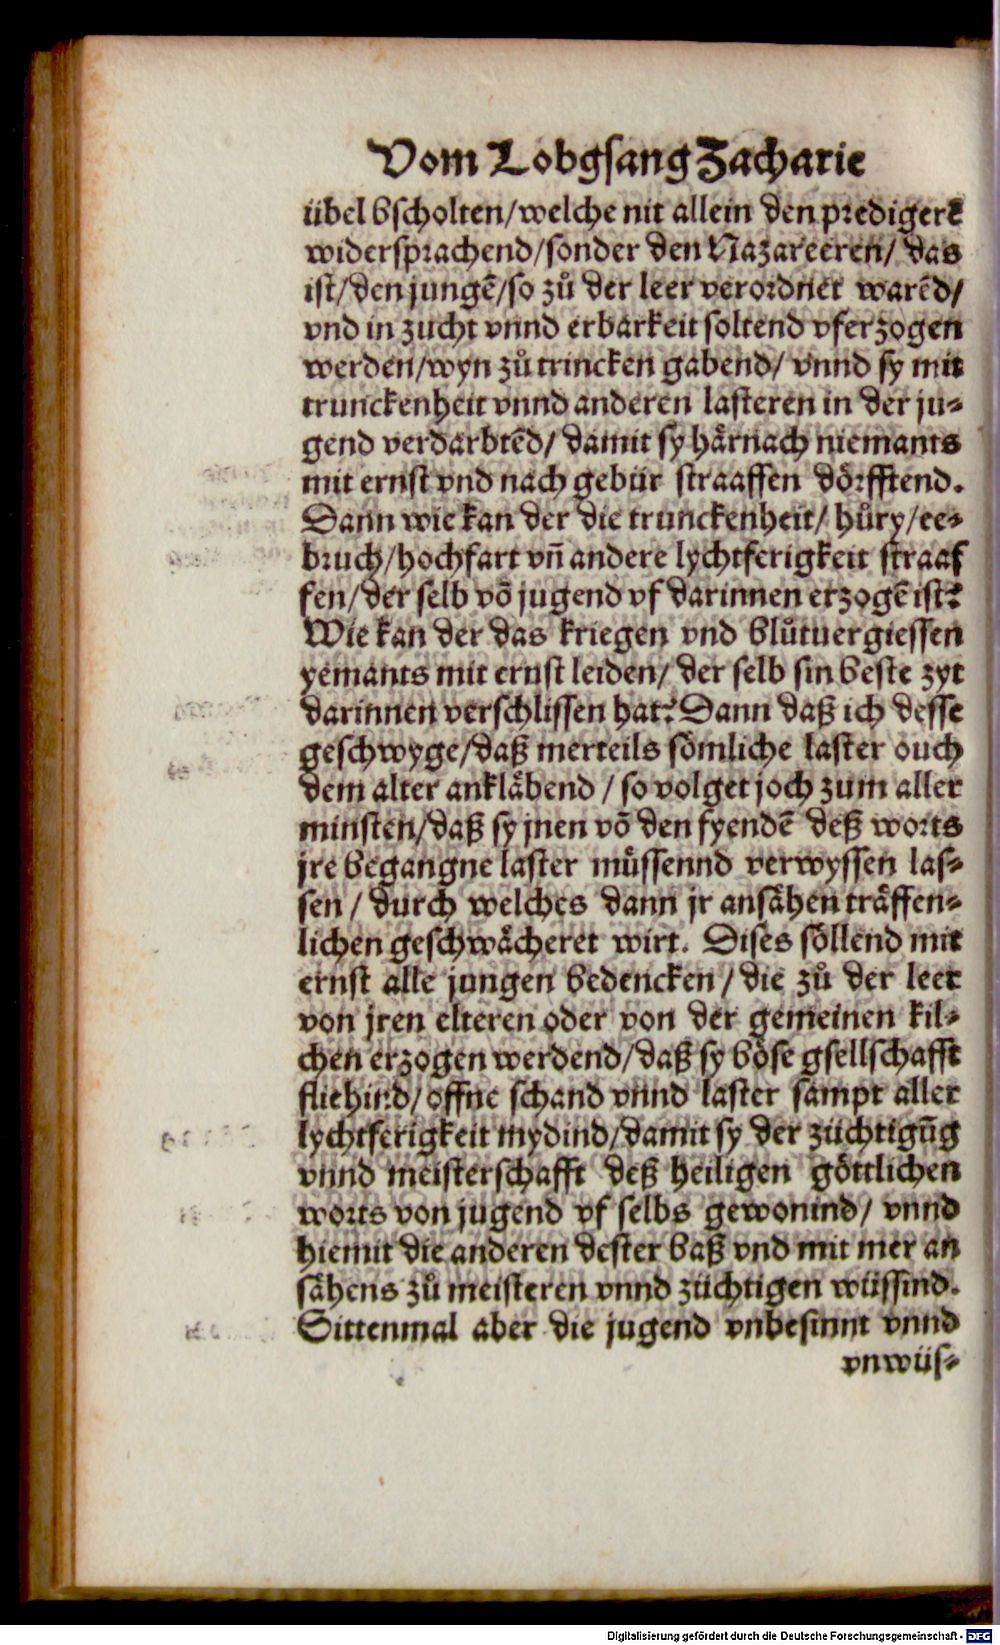 Vom Lobgsang Zacharie
übel bscholten/welche nit allein den predigerē
widersprachend/sonder den Nazareeren/ das
ist/den jungē/so zů der leer verordnet warēd/
vnd in zucht vnnd erbarkeit soltend vferzogen
werden/wyn zů trincken gabend/ vnnd sy mit
trunckenheit vnnd anderen lasteren in der ju-
gend verdarbtēd/ damit sy härnach niemants
mit ernst vnd nach gebür straaffen dörfftend.
Dann wie kan der die trunckenheit/ hůry/ee-
bruch/hochfart vñ andere lychtferigkeit straaf
fen/der selb vō jugend vf darinnen erzogē ist?
Wie kan der das kriegen vnd blůtuergiessen
yemants mit ernst leiden/ der selb sin beste zyt
darinnen verschlissen hat? Dann daß ich desse
geschwyge/daß merteils sömliche laster ouch
dem alter anklåbend / so volget joch zum aller
minsten/daß sy jnen vō den fyendē deß worts
jre begangne laster müssennd verwyssen las-
sen / durch welches dann jr ansåhen tråffen-
lichen geschwåcheret wirt. Dises söllend mit
ernst alle jungen bedencken / die zů der leer
von jren elteren oder von der gemeinen kil-
chen erzogen werdend/daß sy böse gsellschafft
fliehind/offne schand vnnd laster sampt aller
lychtferigkeit mydind/damit sy der züchtigūg
vnnd meisterschafft deß heiligen göttlichen
worts von jugend vf selbs gewonind/ vnnd
hiemit die anderen dester baß vnd mit mer an
såhens zů meisteren vnnd züchtigen wüssind.
Sittenmal aber die jugend vnbesinnt vnnd
vnwüs-
Digitalisierung gefördert durch die Deutsche Forschungsgemeinschaft - DFG